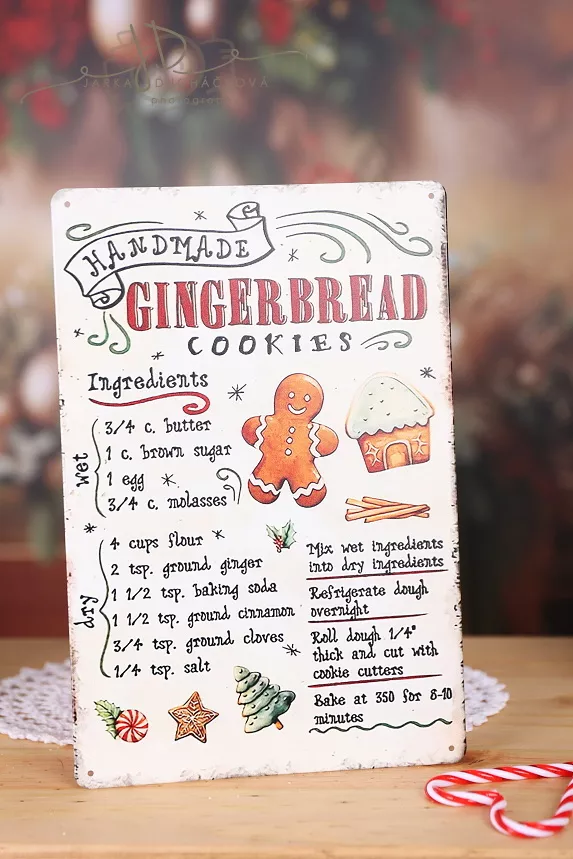 HANDMADE
GINGERBREAD
COOKIES
Ingredients
wet
3/4 c. butter
1 c. brown sugar
1 egg
3/4 c. molasses
dry
4 cups flour
2 tsp. ground ginger
1 1/2 tsp. baking soda
1 1/2 tsp. ground cinnamon
3/4 tsp. ground cloves
1/4 tsp. salt
Mix wet ingredients
into dry ingredients
Refrigerate dough
overnight
Roll dough 1/4"
thick and cut with
cookie cutters
Bake at 350 for 8-10
minutes